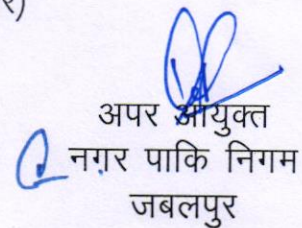 र)
अपर आयुक्त
नगर पाकि निगम
जबलपुर